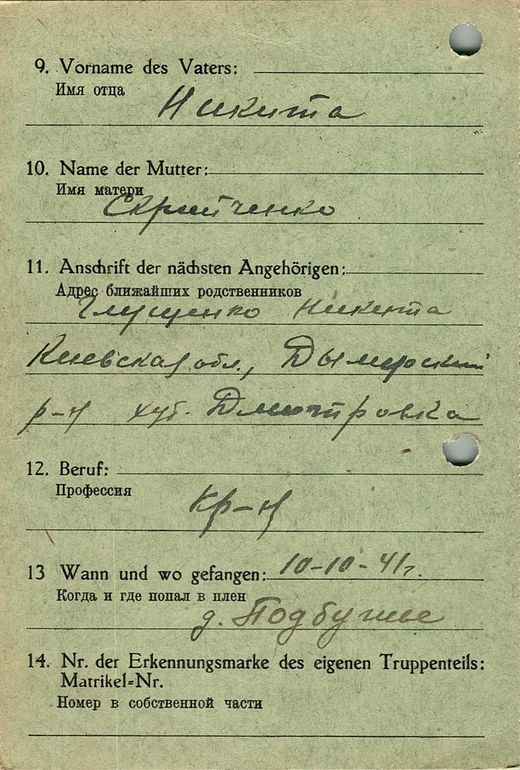 9. Vorname des Vaters:
Имя отца
Никита
10. Name der Mutter:
Имя матери
Скрипченко
11. Anschrift der nächsten Angehörigen:
Адрес ближайших родственников
Глущенко Никита
Киевская обл., Дымерский
р-н хут. Дмитровка
12. Beruf:
Профессия
Кр-н
13 Wann und wo gefangen: 10-10-41г.
Когда и где попал в плен
д. Подбужье
14. Nr. der Erkennungsmarke des eigenen Truppenteils:
Matrikel=Nr.
Номер в собственной части